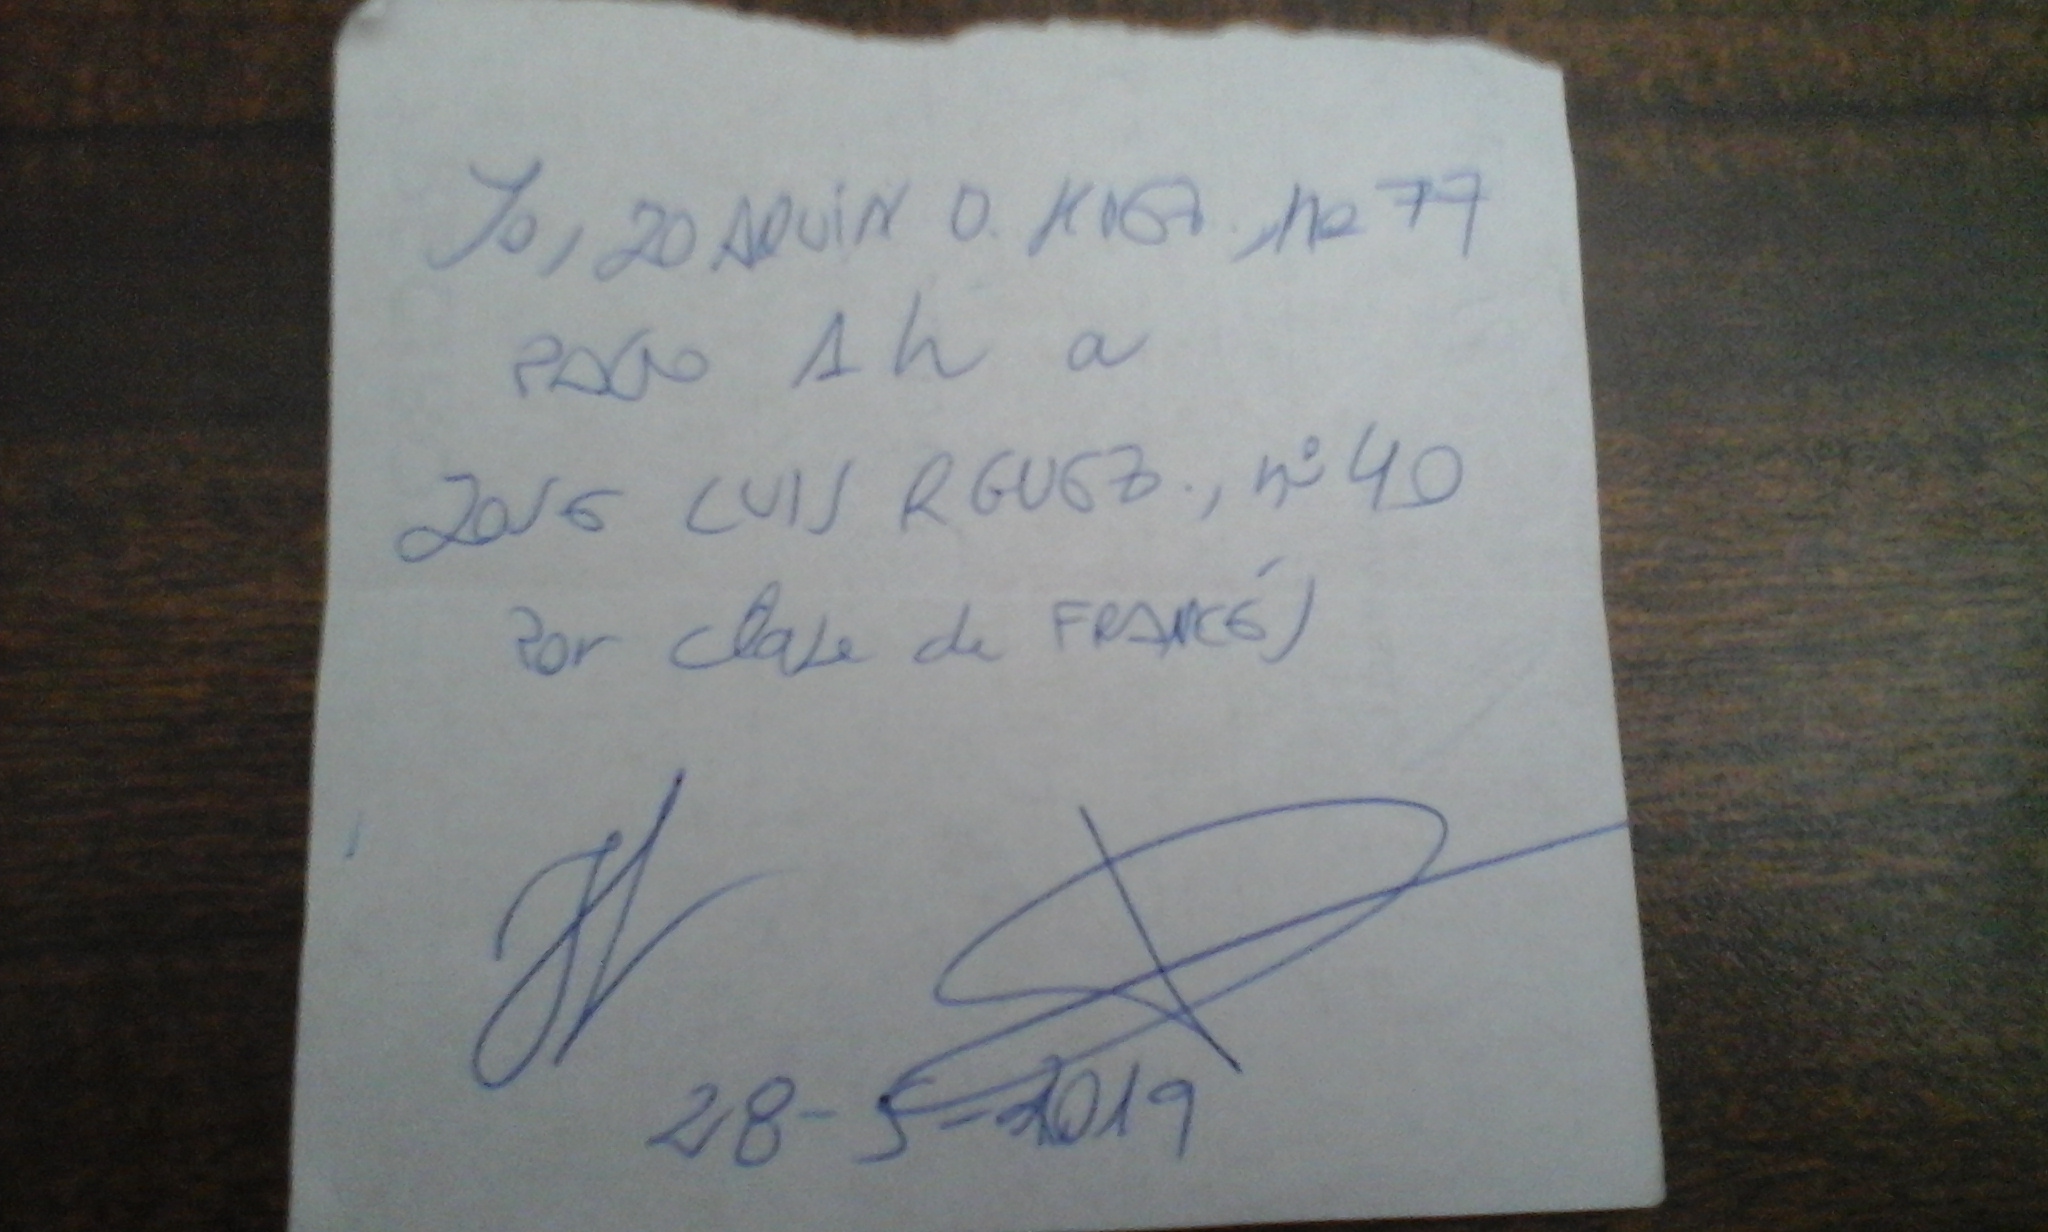 Yo, JOAQUÍN D. , nº 77
PAGO 1 h a
JOSE LUIS RGUEZ., nº 40
Por clase de FRANCÉS
28-5-2019